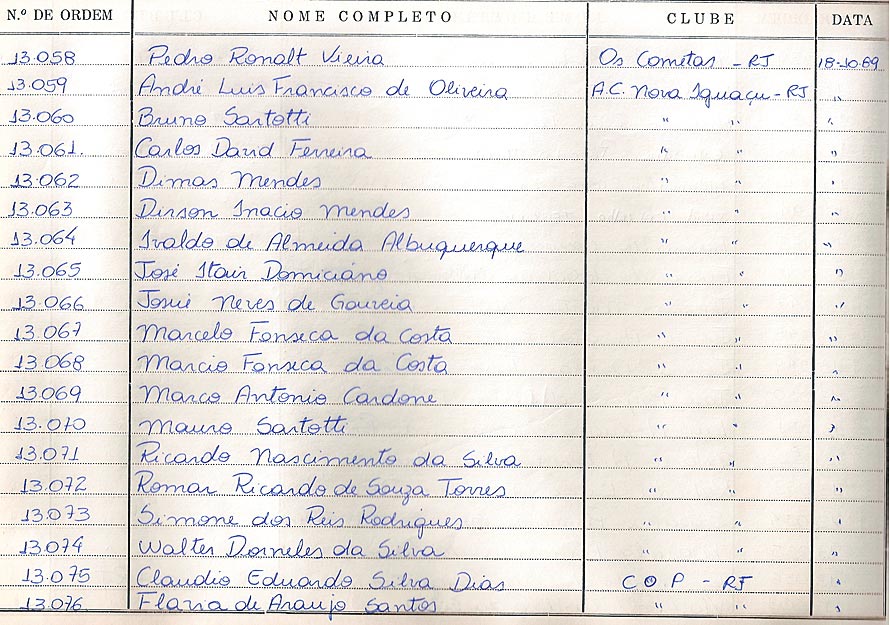 N.º DE ORDEM NOME COMPLETO CLUBE DATA
13.058 Pedro Ronalt Vieira Os Cometas - RJ 18-10.89
13.059 André Luis Francisco de Oliveira A.C. Nova Iguaçu - RJ "
13.060 Bruno Sartotti " " "
13.061. Carlos David Ferreira " " "
13.062 Dimas Mendes " " "
13.063 Dirson Inacio Mendes " " "
13.064 Ivaldo de Almeida Albuquerque " " "
13.065 José Itair Domiciano " " "
13.066 Josué Neves de Gouveia " " "
13.067 Marcelo Fonseca da Costa " " "
13.068 Marcio Fonseca da Costa " " "
13.069 Marco Antonio Cardone " " "
13.070 Mauro Sartotti " " "
13.071 Ricardo Nascimento da Silva " " "
13.072 Romar Ricardo de Souza Torres " " "
13.073 Simone dos Reis Rodrigues " " "
13.074 Walter Dorneles da Silva " " "
13.075 Claudio Eduardo Silva Dias C O P - RJ "
13.076 Flavia de Araujo Santos " " "